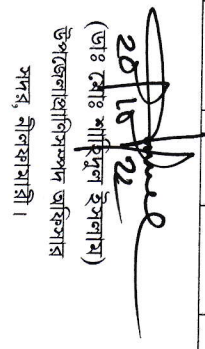 20.10.22
(ডাঃ মোঃ শাহিনুল ইসলাম)
উপজেলা প্রাণিসম্পদ অফিসার
সদর, নীলফামারী।